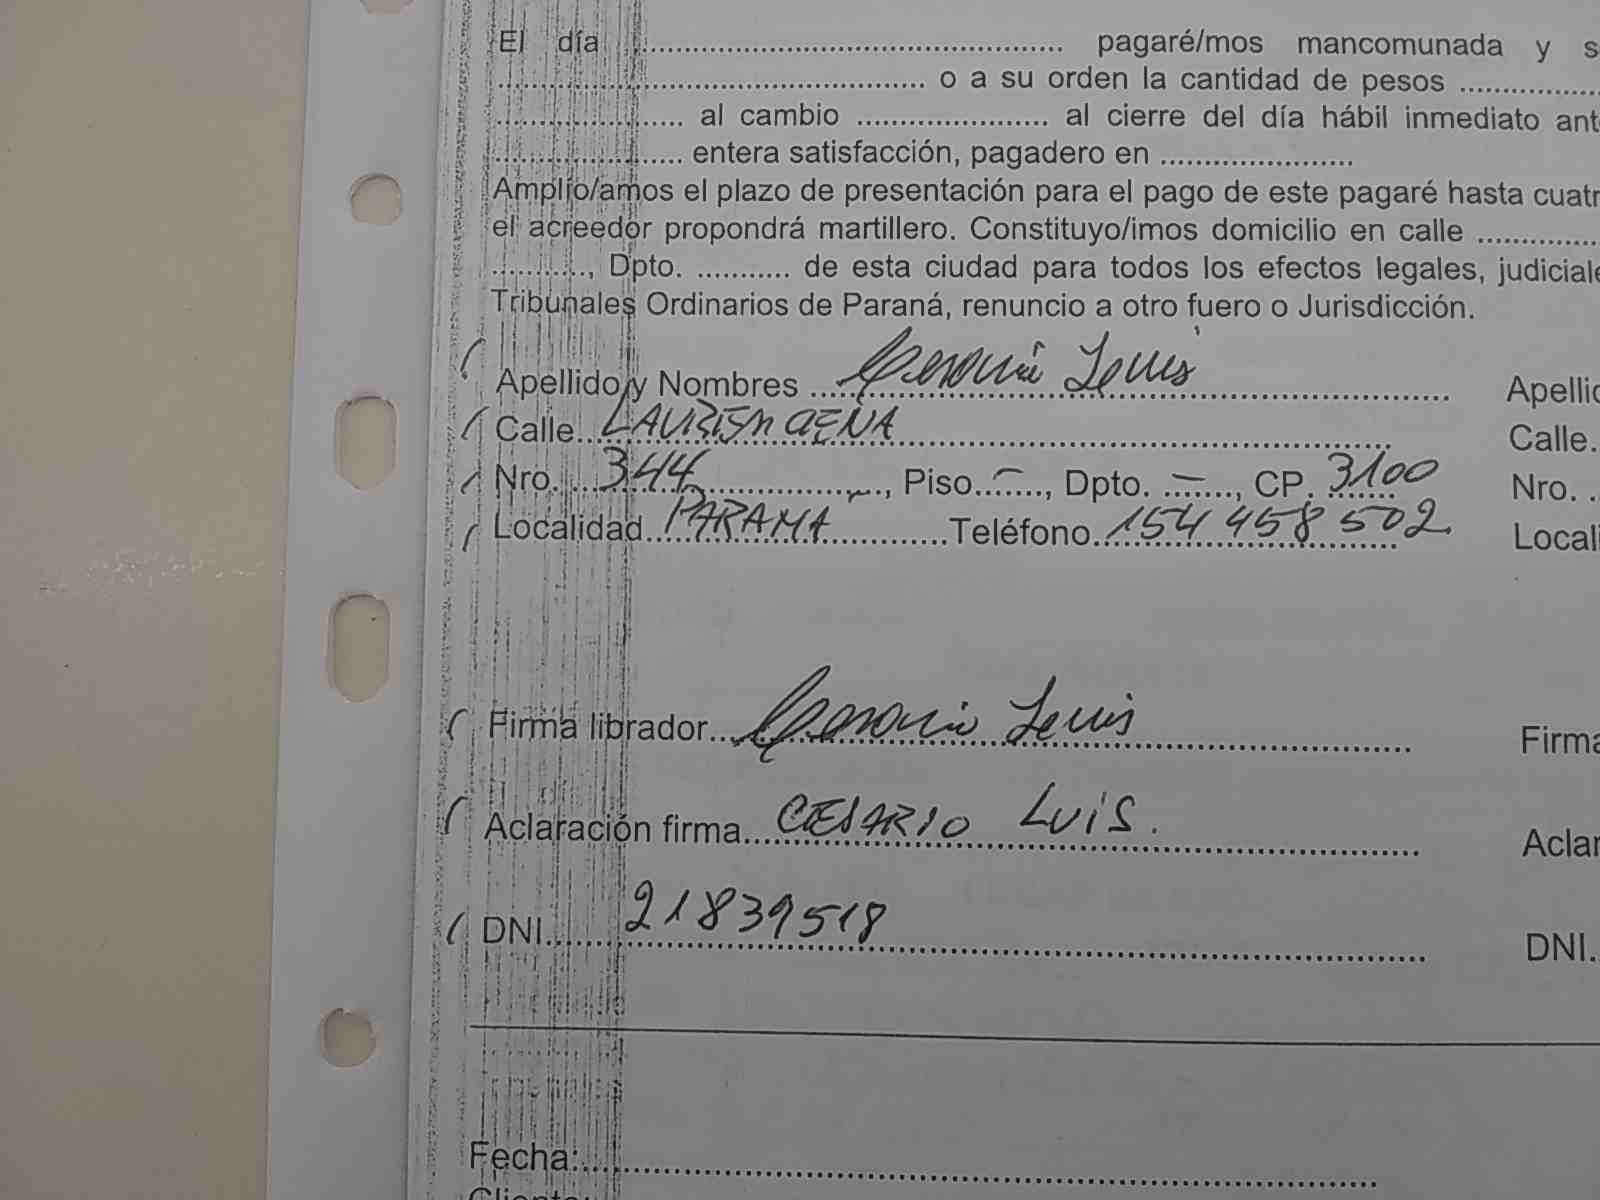 El día ........................................ pagaré/mos mancomunada y s
........................................ o a su orden la cantidad de pesos ................
...................... al cambio ...................... al cierre del día hábil inmediato ant
...................... entera satisfacción, pagadero en ......................
Amplío/amos el plazo de presentación para el pago de este pagaré hasta cuatr
el acreedor propondrá martillero. Constituyo/imos domicilio en calle ..............
..........., Dpto. ........... de esta ciudad para todos los efectos legales, judiciale
Tribunales Ordinarios de Paraná, renuncio a otro fuero o Jurisdicción.
Apellido y Nombres ... Cesario Luis ........ Apellido
Calle... ........ Calle.
Nro. ...344........, Piso..–....., Dpto. .–......, CP. 3100 Nro. .
Localidad...PARAMA........Teléfono..154 458 502. Locali
Firma librador...Cesario Luis........ Firma
Aclaración firma...CESARIO LUIS. Aclar
DNI....21839518........ DNI.
Fecha:................
Cliente: